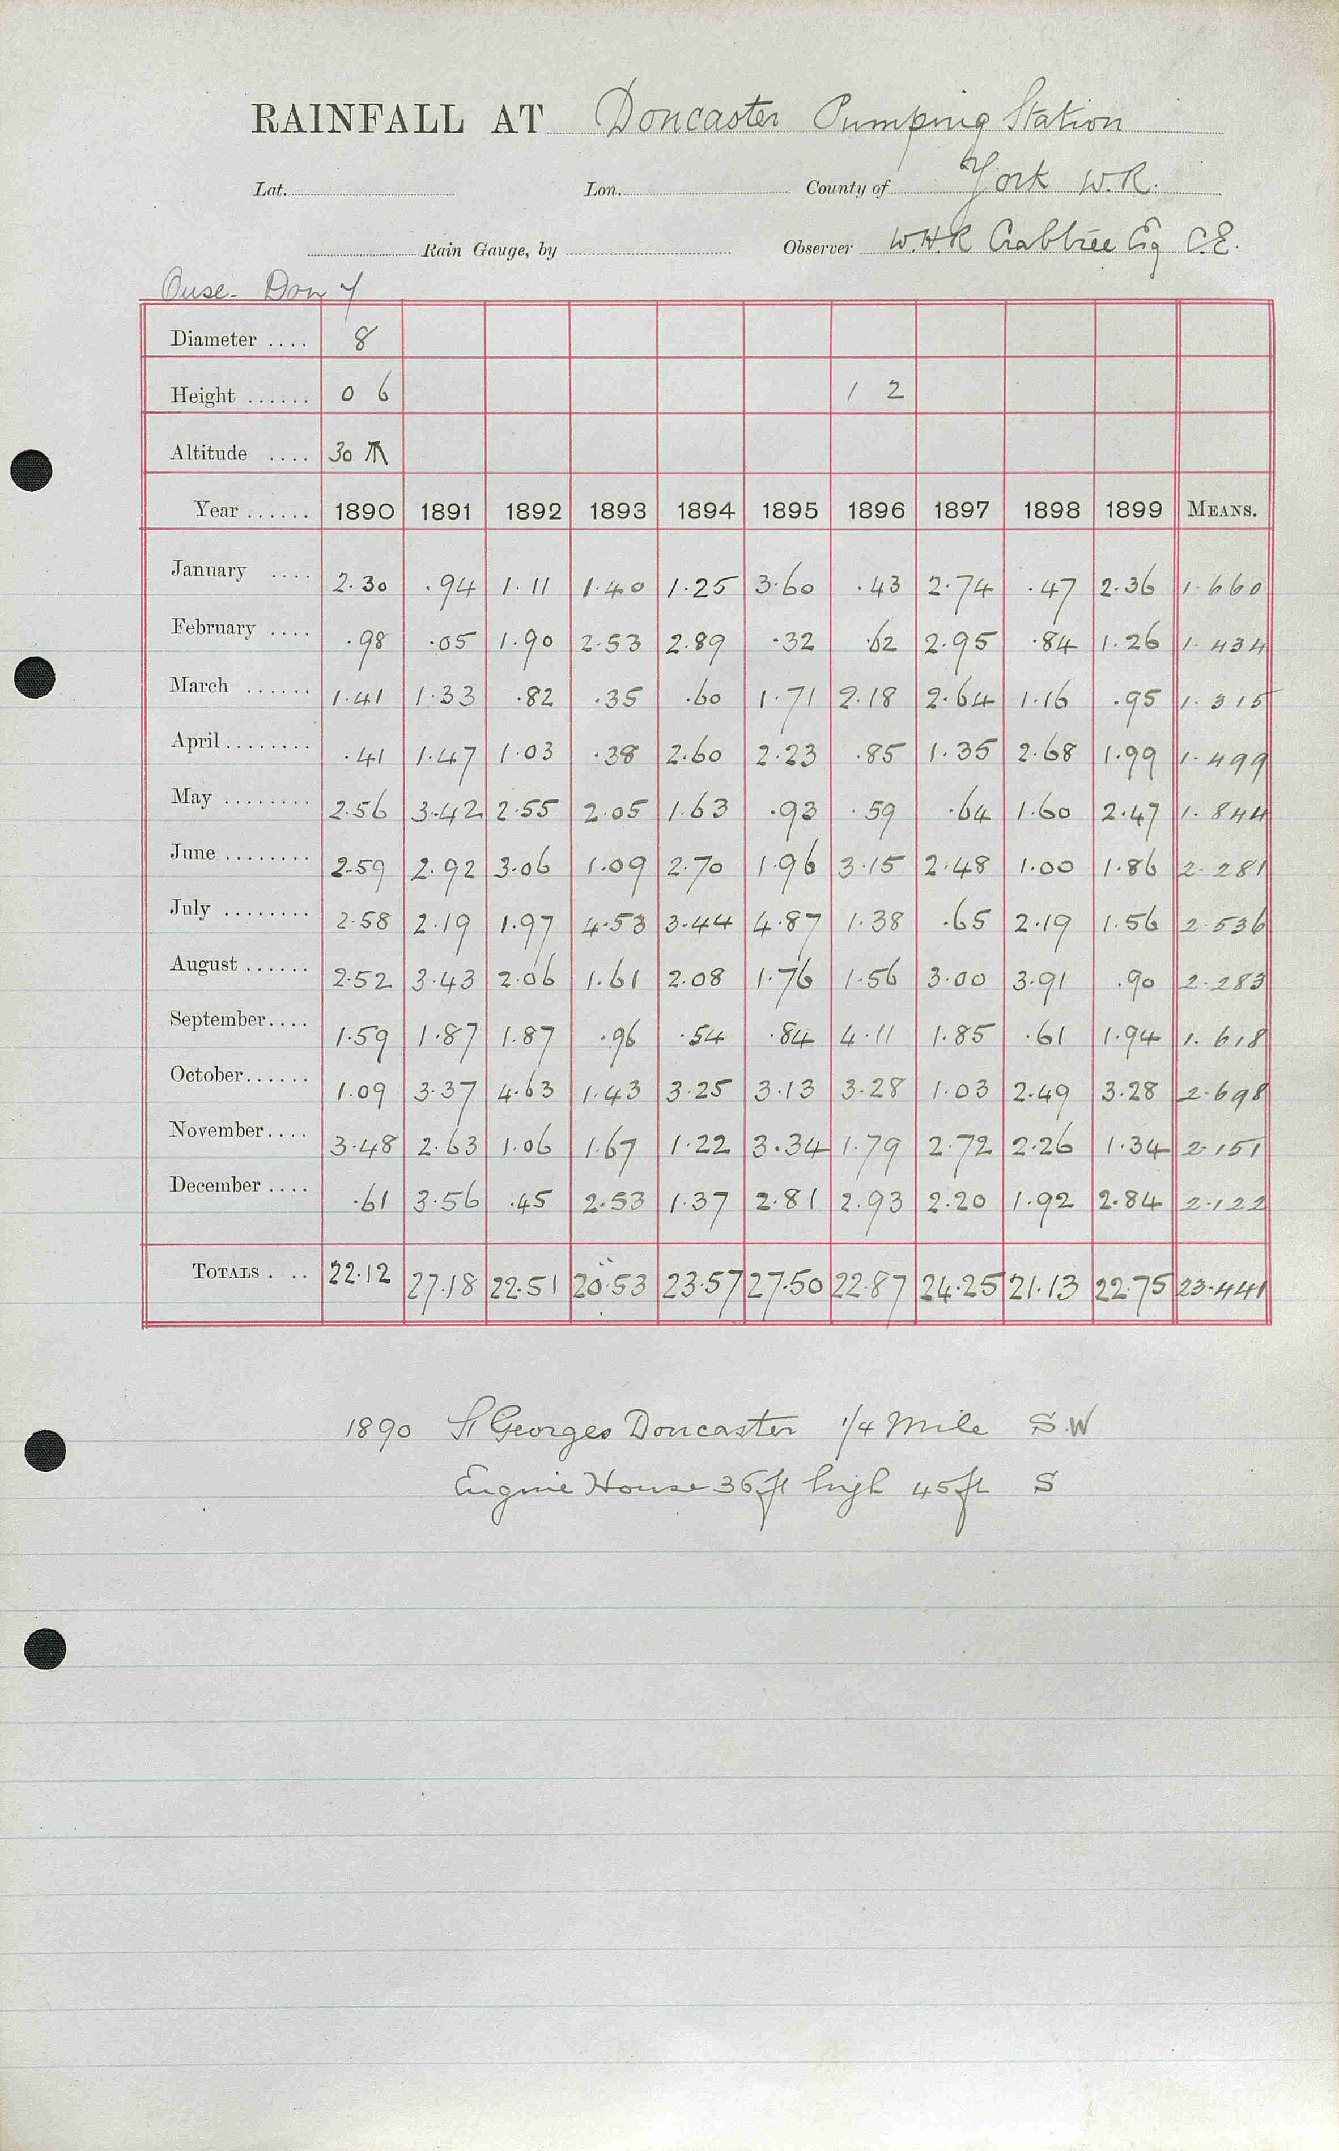 RAINFALL AT Doncaster Pumping Station
Lat. Lon. County of York W.R.
Rain Gauge, by Observer W.H.R Crabtree Esq C.E.
Ouse. Don
Diameter .... 8
Height ...... 0 6 1 2
Altitude .... 30
Year ...... 1890 1891 1892 1893 1894 1895 1896 1897 1898 1899 MEANS.
January .... 2.30 .94 1.11 1.40 1.25 3.60 .43 2.74 .47 2.36 1.660
February .... .98 .05 1.90 2.53 2.89 .32 .62 2.95 .84 1.26 1.434
March ...... 1.41 1.33 .82 .35 .60 1.71 2.18 2.64 1.16 .95 1.315
April ........ .41 1.47 1.03 .38 2.60 2.23 .85 1.35 2.68 1.99 1.499
May ........ 2.56 3.42 2.55 2.05 1.63 .93 .59 .64 1.60 2.47 1.844
June ........ 2.59 2.92 3.06 1.09 2.70 1.96 3.15 2.48 1.00 1.86 2.281
July ........ 2.58 2.19 1.97 4.53 3.44 4.87 1.38 .65 2.19 1.56 2.536
August ...... 2.52 3.43 2.06 1.61 2.08 1.76 1.56 3.00 3.91 .90 2.283
September.... 1.59 1.87 1.87 .96 .54 .84 4.11 1.85 .61 1.94 1.618
October...... 1.09 3.37 4.63 1.43 3.25 3.13 3.28 1.03 2.49 3.28 2.698
November.... 3.48 2.63 1.06 1.67 1.22 3.34 1.79 2.72 2.26 1.34 2.151
December .... .61 3.56 .45 2.53 1.37 2.81 2.93 2.20 1.92 2.84 2.122
TOTALS .... 22.12 27.18 22.51 20.53 23.57 27.50 22.87 24.25 21.13 22.75 23.441
1890 St Georges Doncaster 1/4 Mile S.W
Engine House 36ft high 45ft S